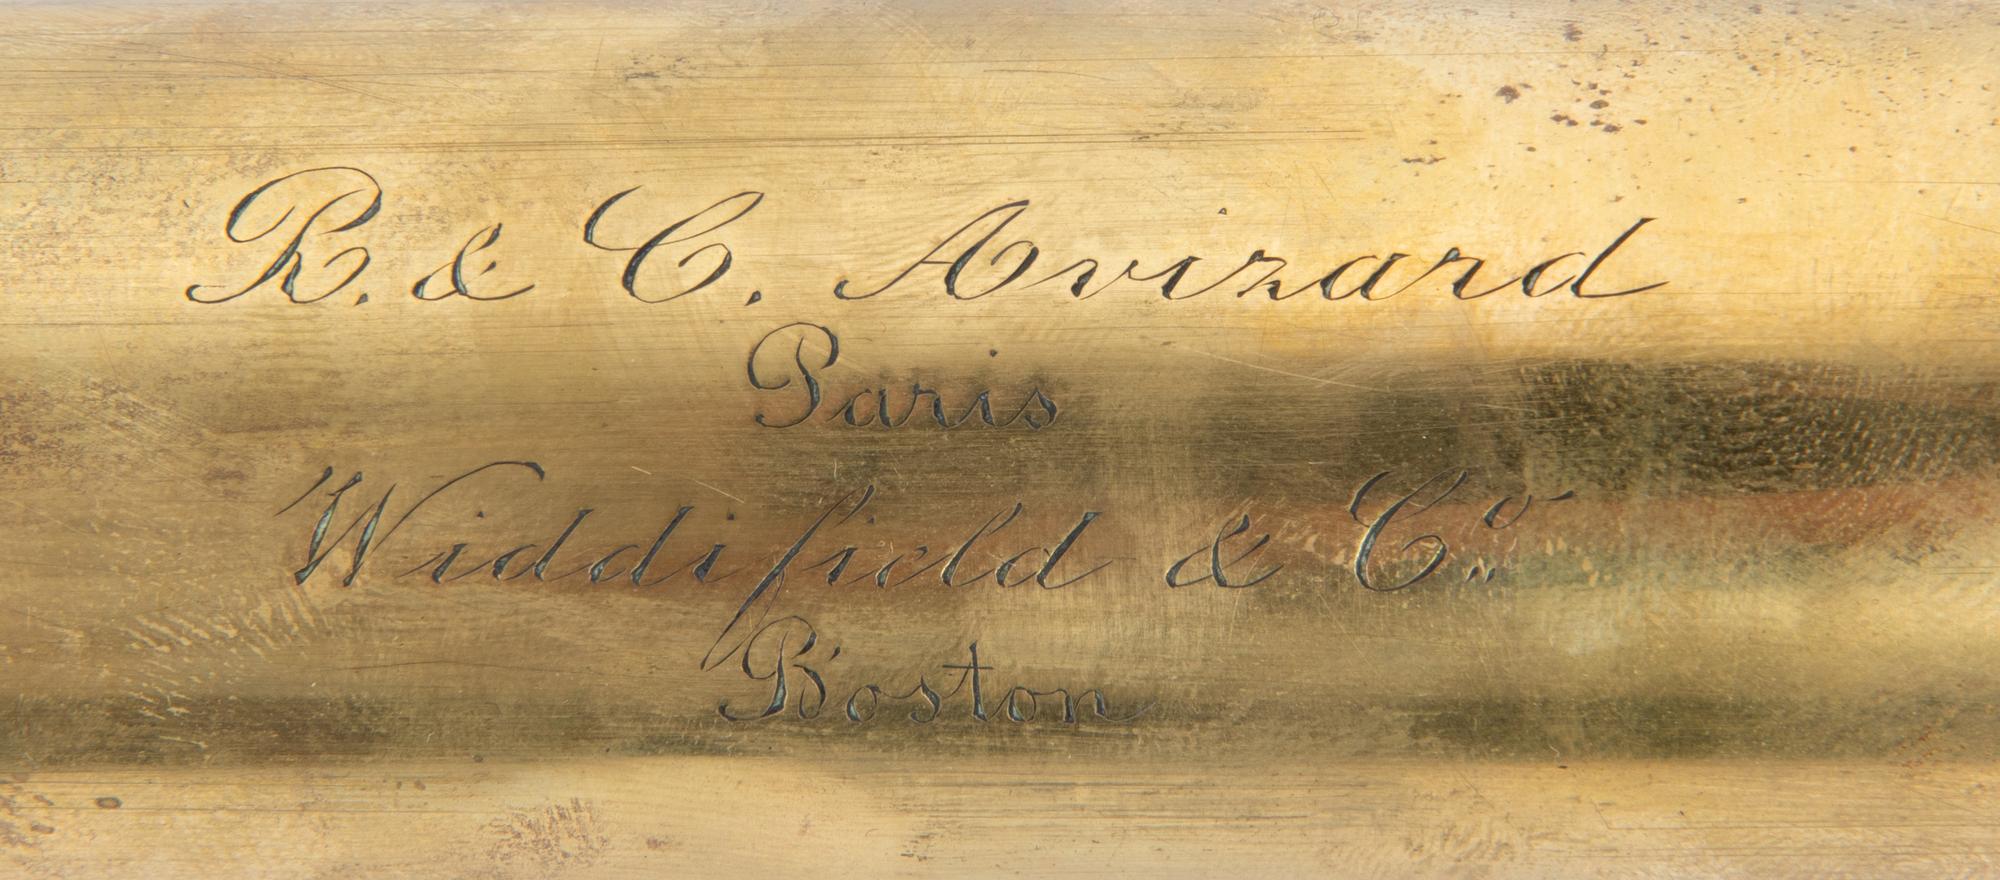 R. & C. Avizard
Paris
Widdifield & Co.
Boston